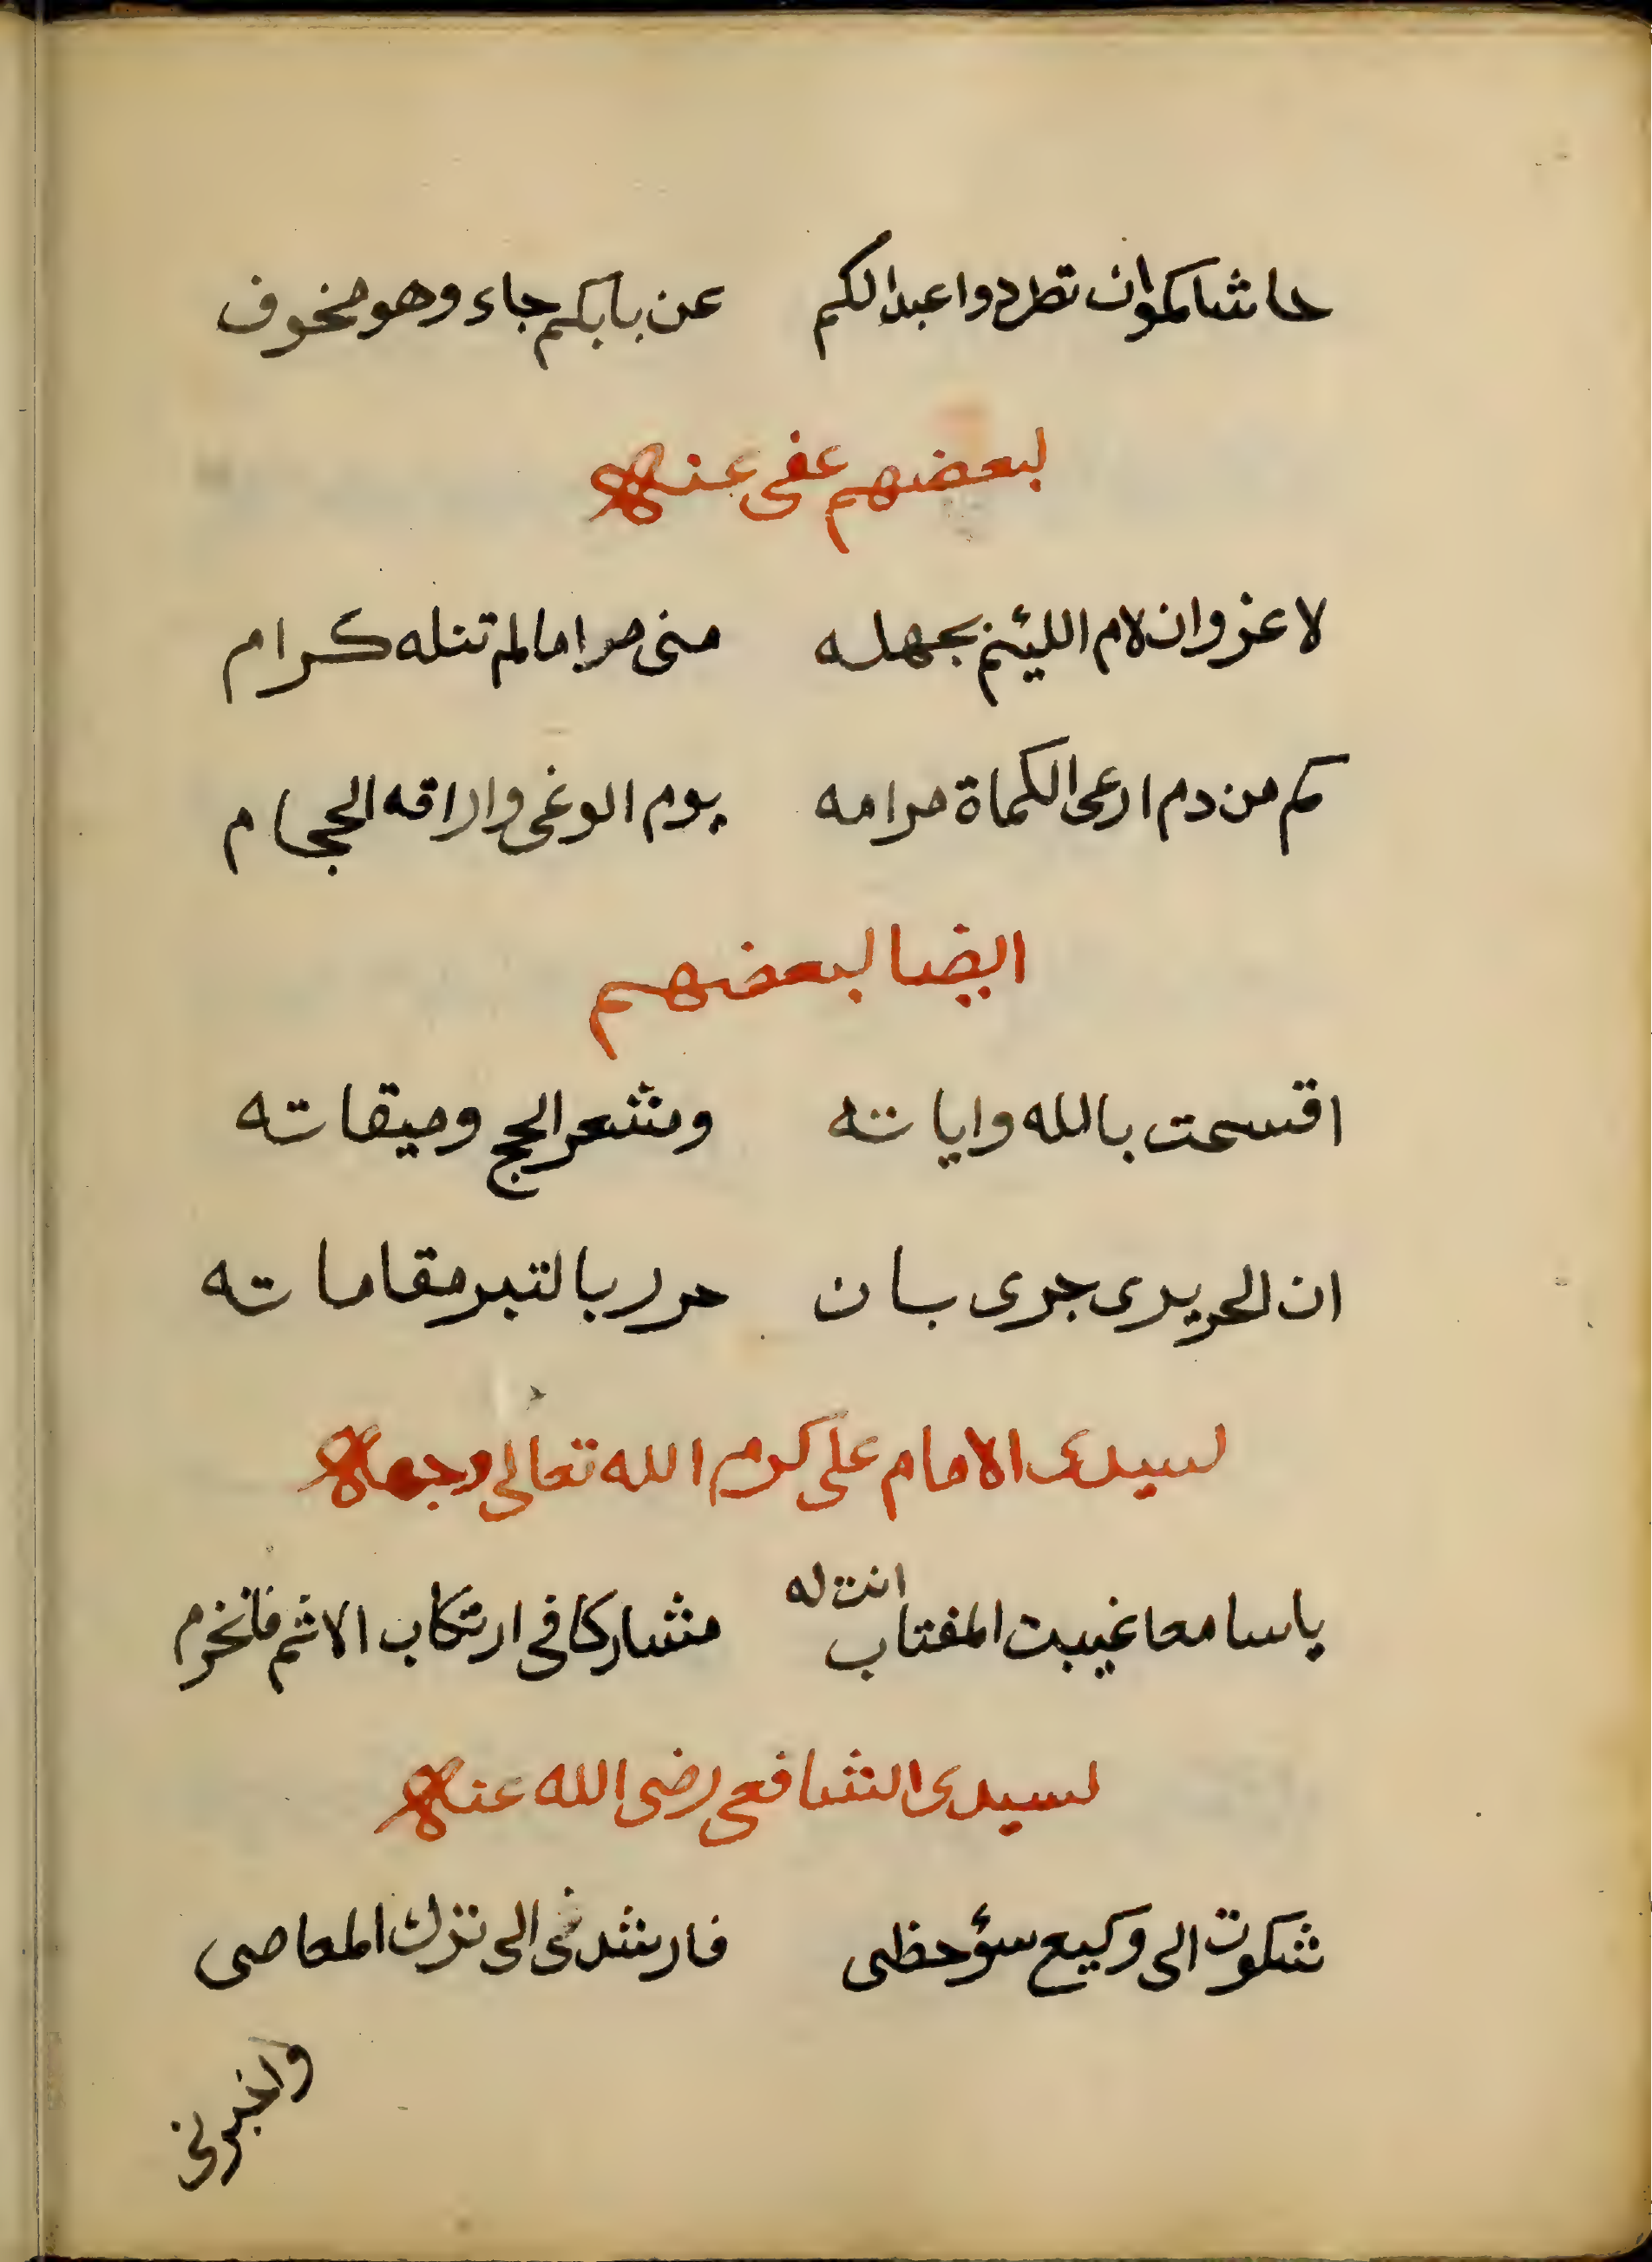 حاشاكموا ان تطردوا عبدا لكم عن بابكم جاء وهو مخوف
لبعضهم عفى عنه
لا غزو ان لام اللئيم بجهله منى مراما لم تنله كرام
كم من دم ارعى الكماة مرامه يوم الوغى واراقه الحجام
ايضا لبعضهم
اقسمت بالله واياته ومشعر الحج وميقاته
ان الحريرى جرى بان حرر بالتبر مقاماته
لسيدى الامام على كرم الله تعالى وجهه
ياسامعا غيبت المفتاب انت له مشاركا فى ارتكاب الاثم فانخرم
لسيدى الشافعى رضى الله عنه
شكوت الى وكيع سؤ حظى فارشدنى الى ترك المعاصى
واخبرنى